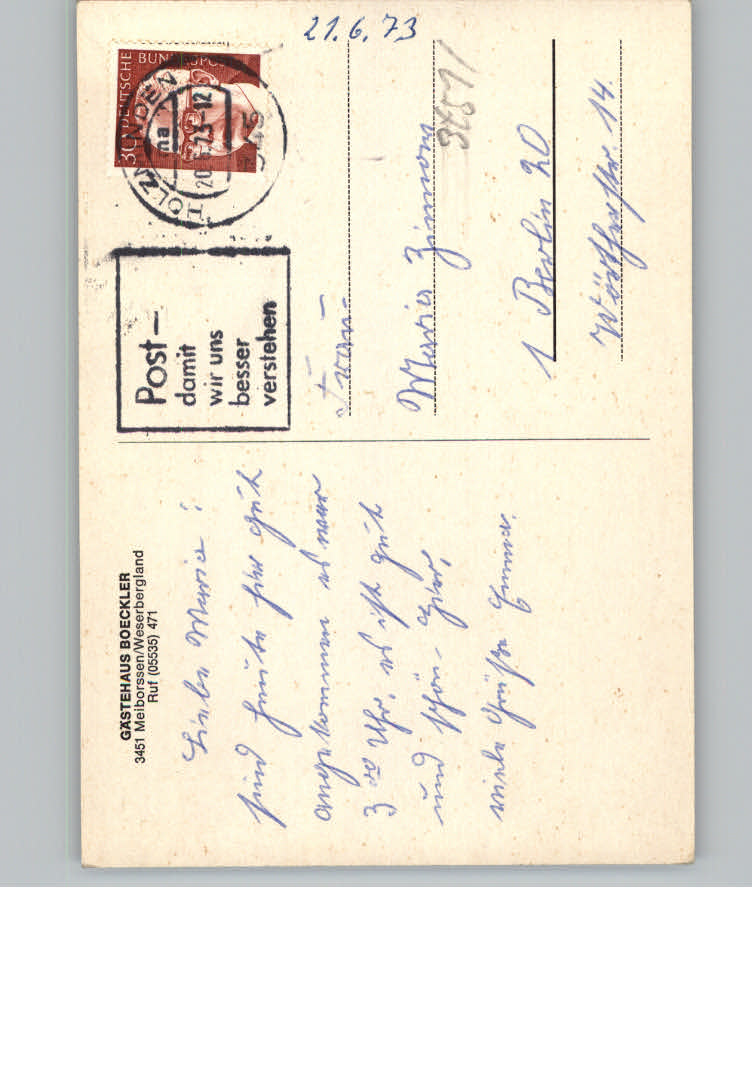 GÄSTEHAUS BOECKLER
3451 Meiborssen/Weserbergland
Ruf (05535) 471
Liebe Maria!
sind heute hier gut
angekommen es war
3 00 Uhr, es ist gut
und schön hier,
viele Grüße Emma.
21.6.73
DEUTSCHE BUNDESPOST
30
HOLZMINDEN
na
20.6.73-12
345
Post –
damit
wir uns
besser
verstehen
Frau
Maria
3451
1 Berlin 20
14.